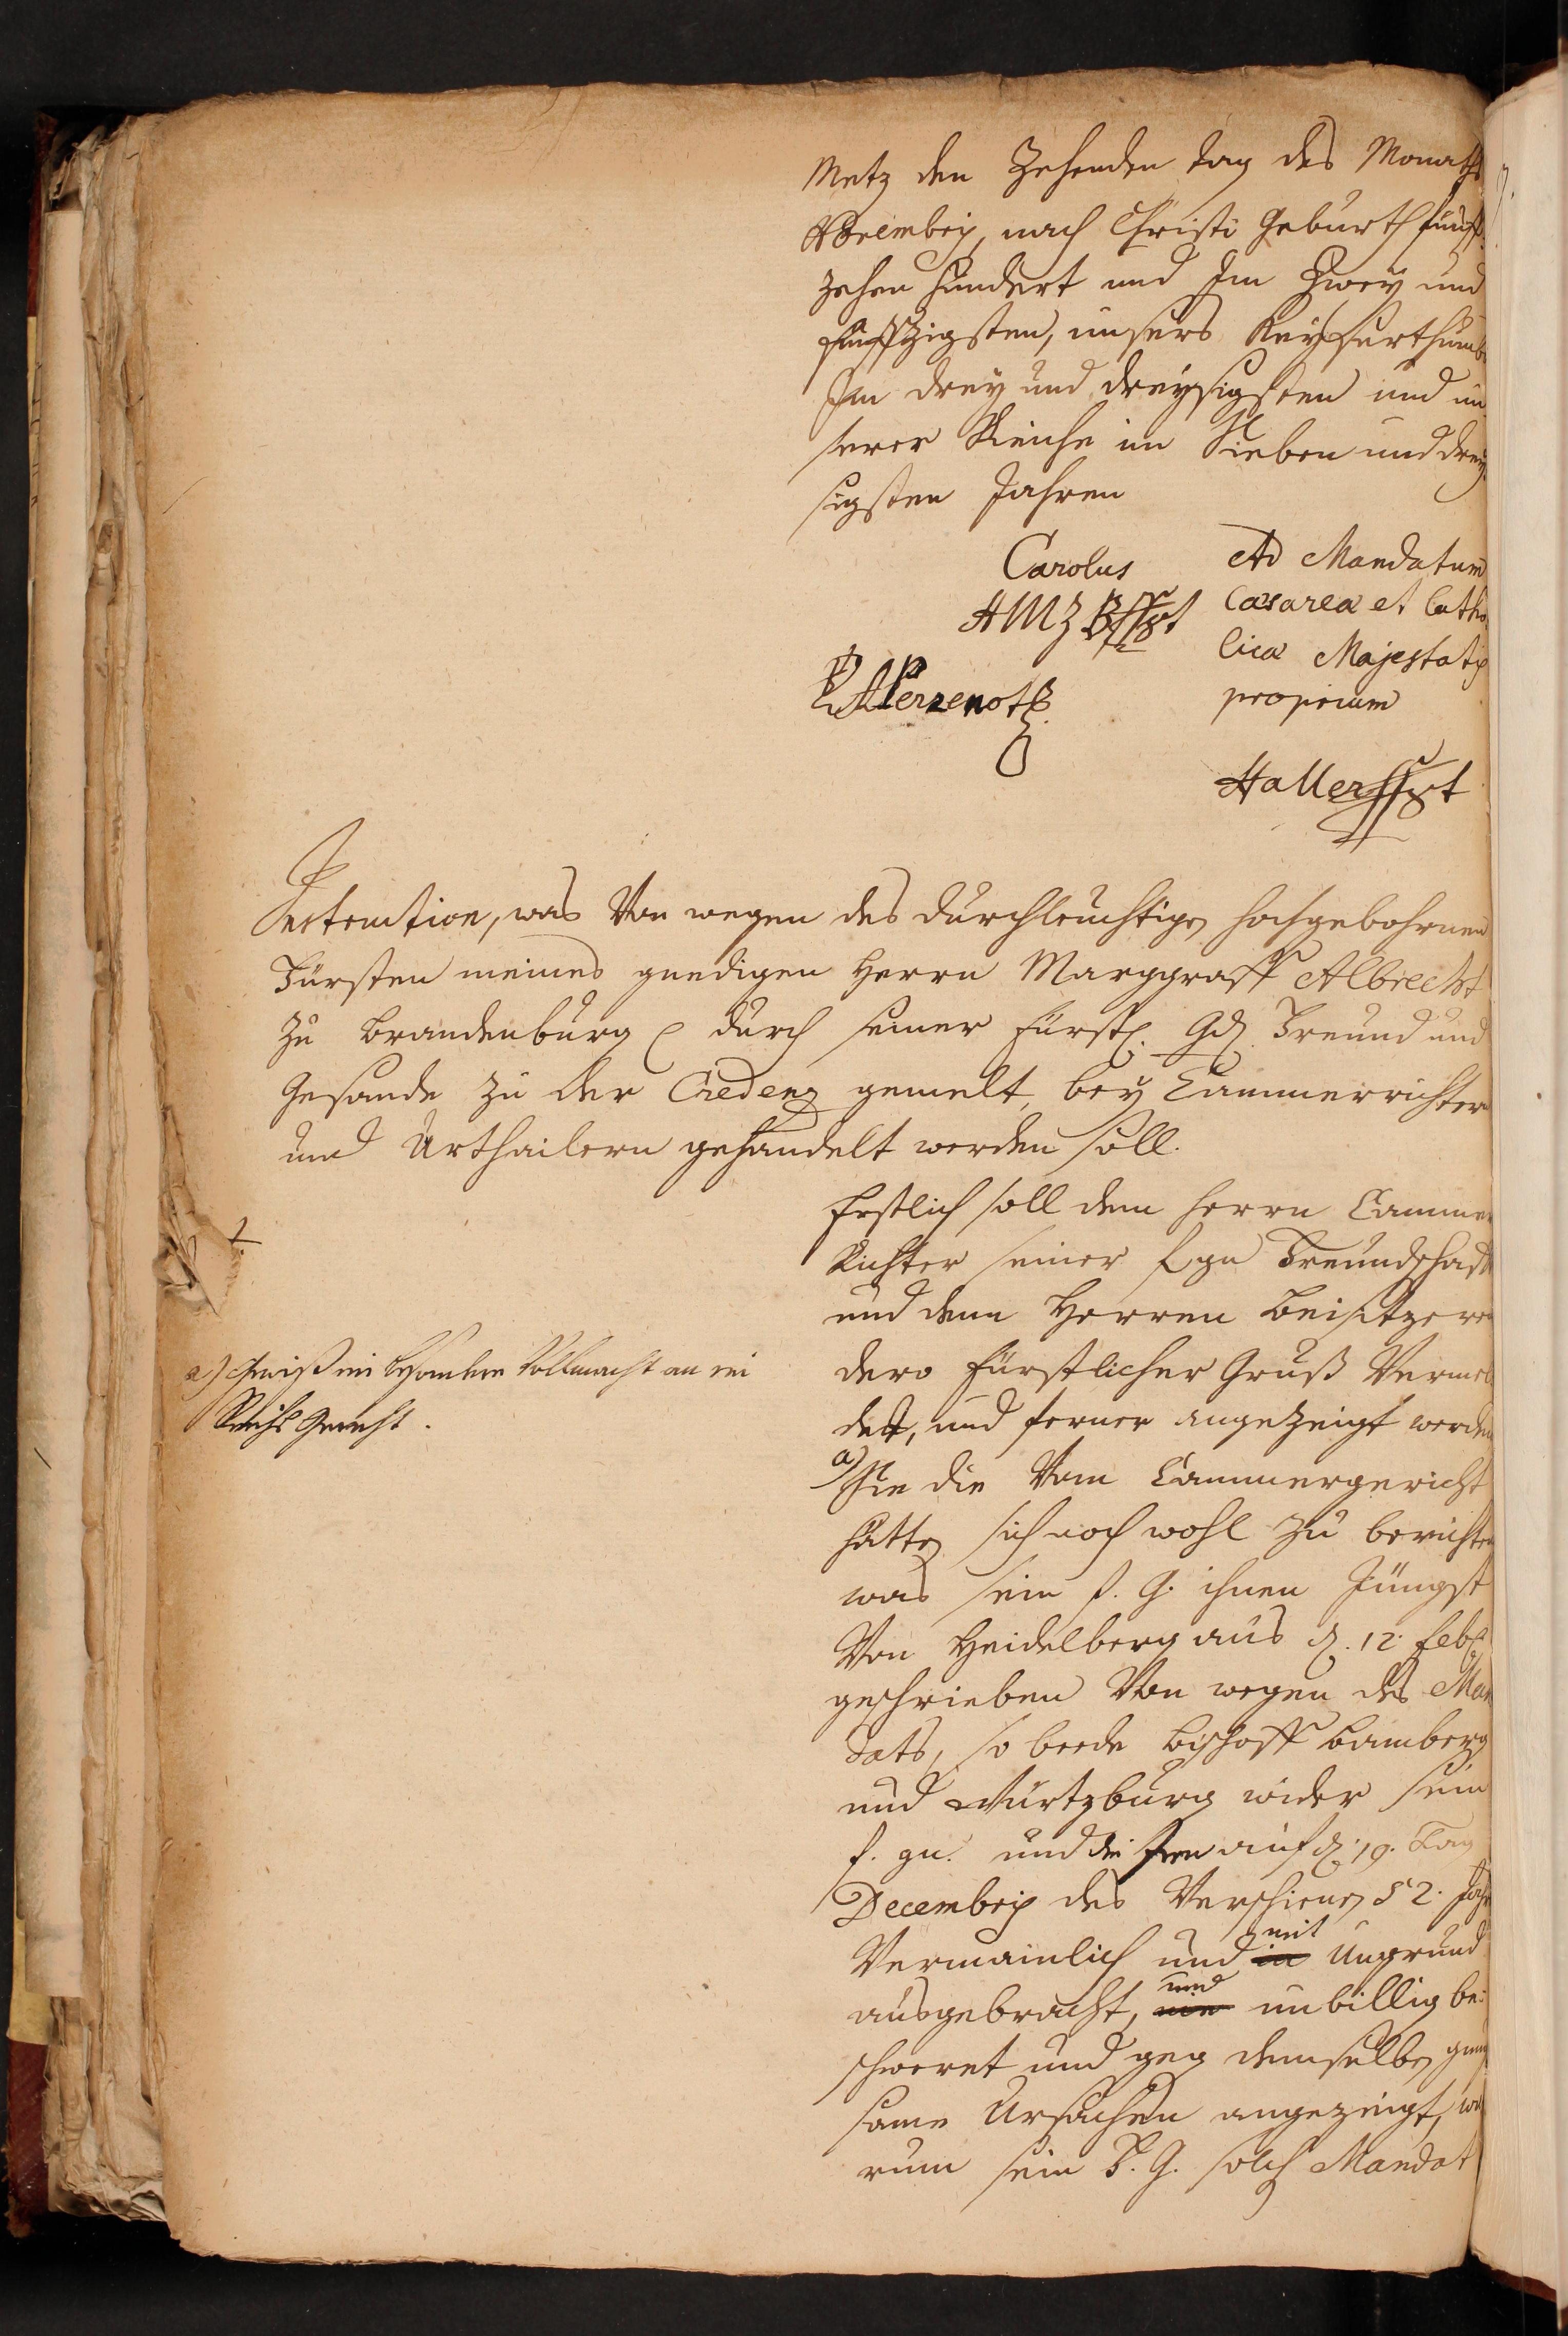 Metz den Zehenden tag des Monaths
Novembris, nach Christi Geburth fünff-
zehen hundert und Im Zwey und
fünffzigsten, unsers Keysserthumbs
Im drey und dreysigsten und un
serer Reiche im Sieben und drey
sigsten Jahren
Carolus
Ad Mandatum
Cæsareæ et Catho-
licæ Majestatis
proprium
Haller
Instruction, was Von wegen des durchleuchtigen hochgebohrnen
Fürsten meines gnedigen Herrn Marggraff Albrecht
zu Brandenburg durch seiner Fürstl. Gd. Freund und
Gesande zu der Credenz gemelt, bey Cammerrichter
und Urthailern gehandelt werden soll.
Erstlich soll dem Herrn Cammer
Richter seiner f gn Freundschafft
und denn Herren Beisitzeren
dero Fürstlicher Gruß Vermel
det, und ferner angezeigt werden
a) Sie die Vom Cammergericht
hatten sich noch wohl zu berichten
was sein f. G. ihnen Jüngst
Von Heidelberg aus d. 12. feb
geschrieben Von wegen des Man
dats, so beede Bischoff Bamberg
und Würtzburg wider sein
f. gn. und die Iren auf d. 19. Tag
Decembris des Verschienen 52. Jahr
Vermainlich und in mit Ungrund
ausgebracht, und unbillig be-
schweret und gegen demselben gnug
same Ursachen angezeigt, wa
rum sein F. G. solch Mandat
a) Gewiß ein besondere Vollmacht an ein
Reichs Gericht.